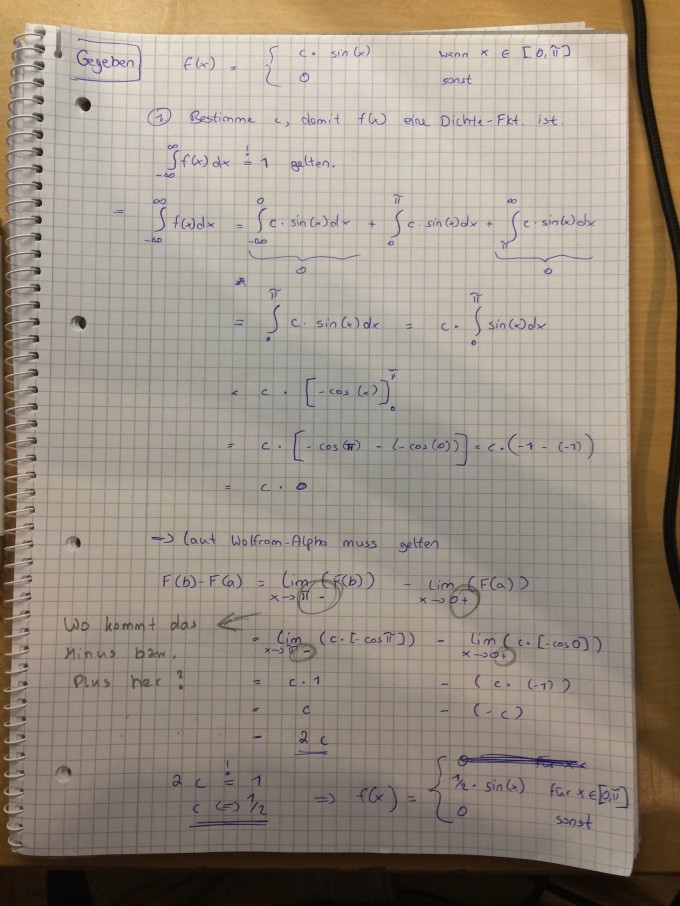 Gegeben f(x) = { c · sin(x) wenn x ∈ [0, π]
0 sonst
① Bestimme c, damit f(x) eine Dichte-Fkt. ist.
∫_{-∞}^{∞} f(x) dx =! 1 gelten.
= ∫_{-∞}^{∞} f(x) dx = ∫_{-∞}^{0} c · sin(x) dx + ∫_{0}^{π} c · sin(x) dx + ∫_{π}^{∞} c · sin(x) dx
0 0
= ∫_{0}^{π} c · sin(x) dx = c · ∫_{0}^{π} sin(x) dx
= c · [-cos(x)]_{0}^{π}
= c · [-cos(π) - (-cos(0))] = c · (-1 - (-1))
= c · 0
=> laut Wolfram-Alpha muss gelten
F(b) - F(a) = lim_{x→π-} (F(b)) - lim_{x→0+} (F(a))
Wo kommt das Minus bzw. Plus her? ←
= lim_{x→π-} (c · [-cos π]) - lim_{x→0+} (c · [-cos 0])
= c · 1 - (c · (-1))
= c - (-c)
= 2c
2c =! 1
c <=> 1/2 => f(x) = { 1/2 · sin(x) für x ∈ [0, π]
0 sonst